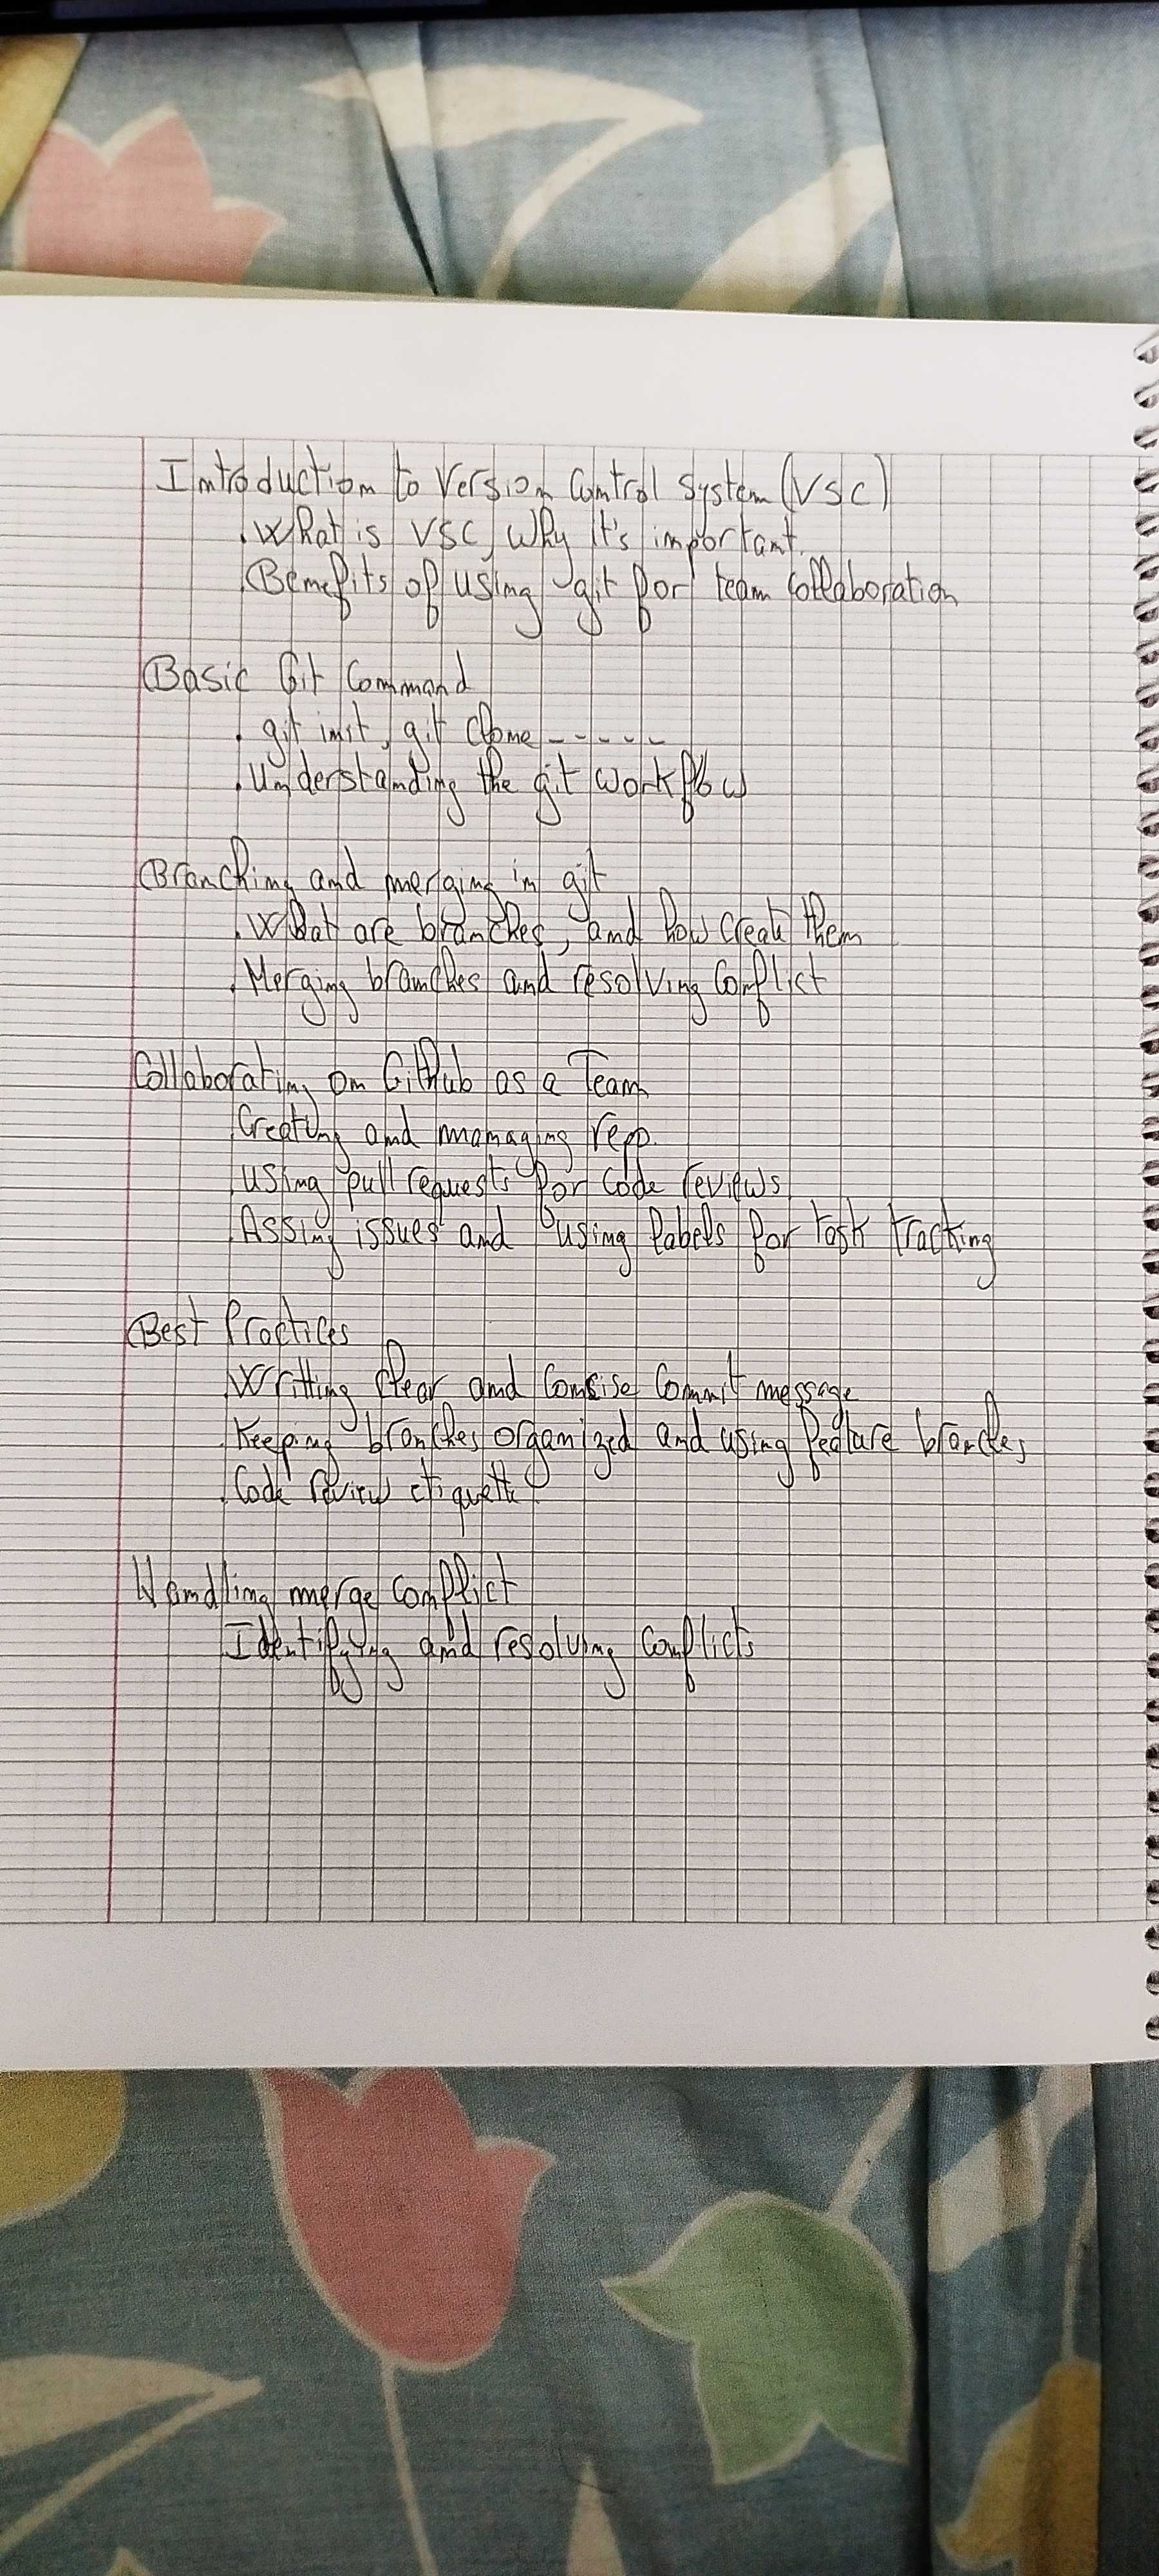 Introduction to Version Control System (VSC)
. What is VSC, Why it's important.
. Benefits of using git for team collaboration
Basic Git Command
. git init, git clone - - - - -
. Understanding the git workflow
Branching and merging in git
. What are branches, and how create them
. Merging branches and resolving conflict
Collaborating on GitHub as a Team
. Creating and managing repo.
. using pull requests for code reviews
. Assing issues and using labels for task tracking
Best Practices
. Writting clear and concise commit message
. Keeping branches organized and using feature branches
. Code review etiquette
Handling merge conflict
. Identifying and resolving conflicts